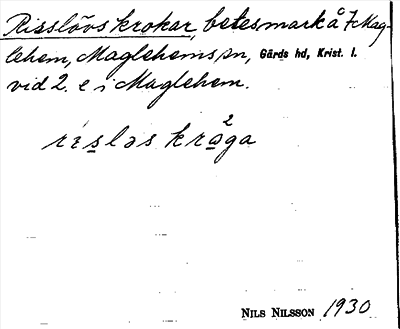 Risslövs krokar, betesmark å 7 Mag-
lehem, Maglehems sn, Gärds hd, Krist. l.
vid 2. e i Maglehem.
2
rɪsləs krɷga
NILS NILSSON 1930